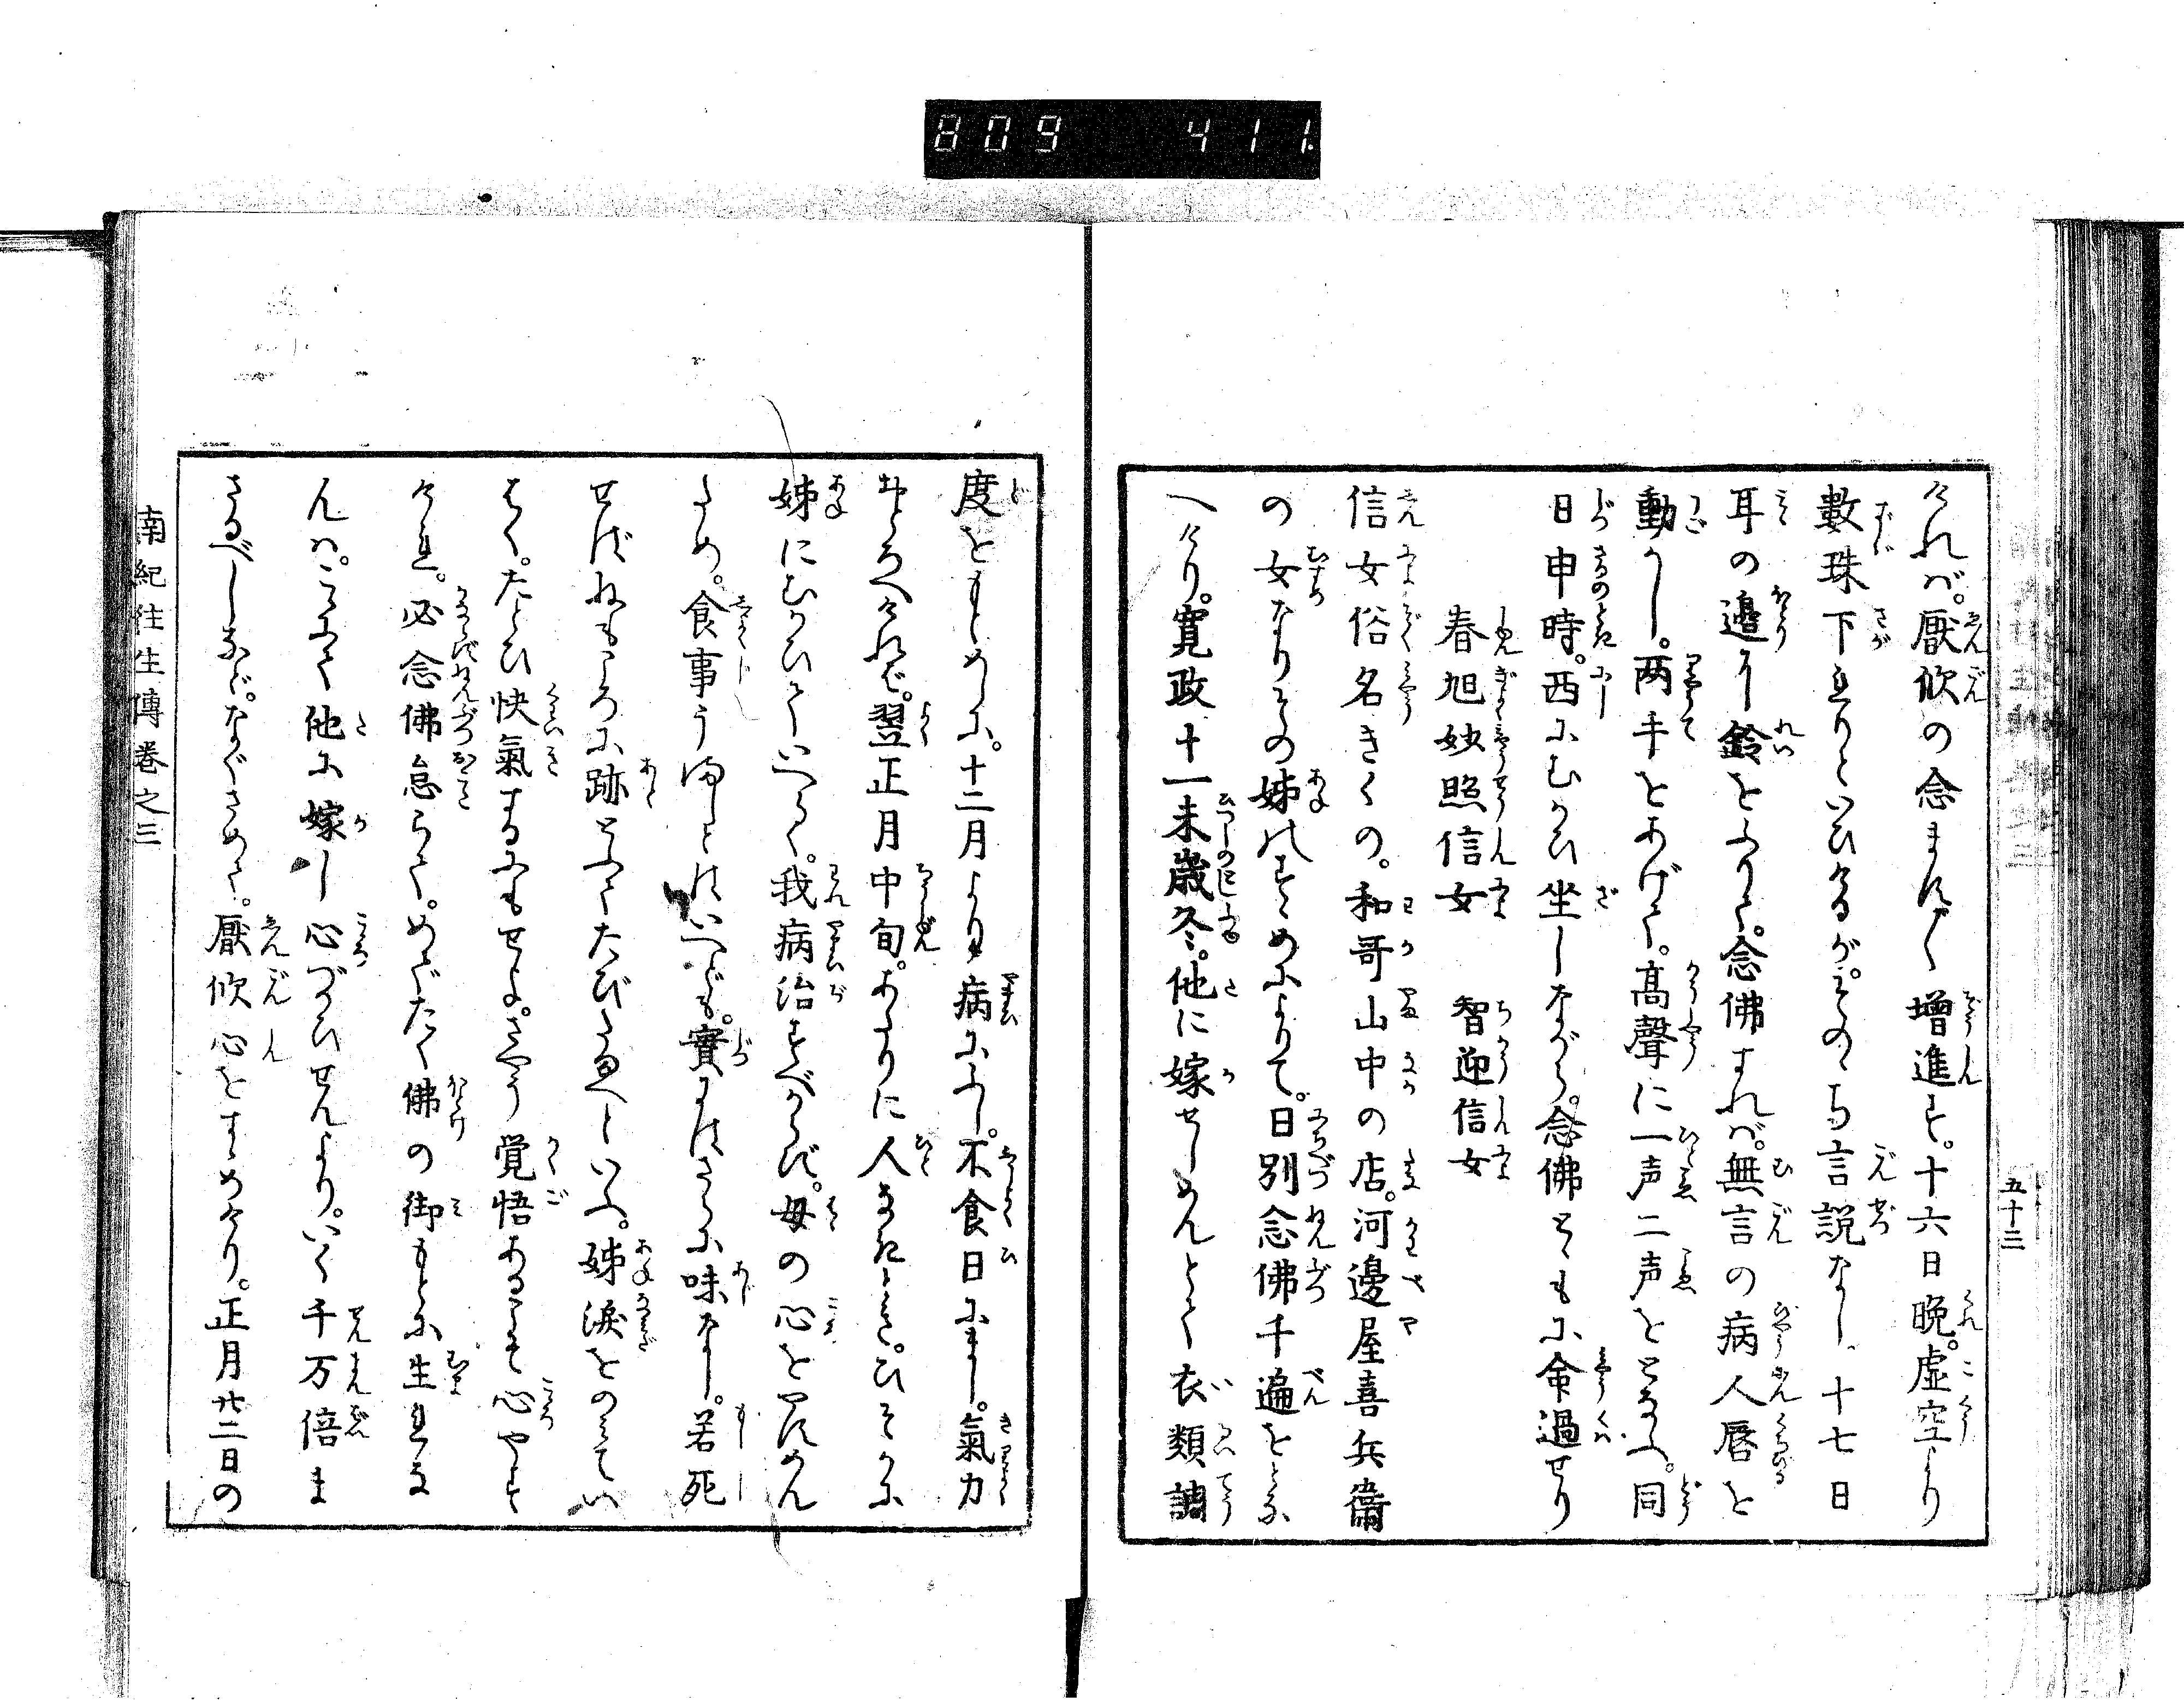 809 411
五十三
々れば。厭欣の念ます〳〵増進す。十六日晩。虚空より
數珠下れりといひけるが。そのゝち言説なし。十七日
耳の邉に鈴をふりて。念佛すれば。無言の病人唇を
動かし。両手をあげて。髙聲に一声二声をとなふ。同
日申時。西にむかひ坐しながら。念佛とともに命過せり
春旭妙照信女 智迎信女
信女俗名きくの。和哥山中の店。河邊屋喜兵衞
の女なりその姉のすゝめによりて。日別念佛千遍をとな
へけり。寛政十一未歳冬。他に嫁せしめんとて衣類調
度をもとめしに。十二月より病にふし。不食日にまし。氣力
おとろへければ。翌正月中旬。あたりに人なきとき。ひそかに
姉にむかひていへらく。我病治すべからず。母の心をやすめん
ため。食事うけしとはいへども。實にはさらに味なし。若死
せばねもころに跡とふてたびたまへといふ。姉涙をのみてい
はく。たとひ快氣するにもせよ。さやう覚悟あるこそ心やす
けれ。必念佛怠らで。めでたく佛の御もとに生れな
んは。こゝかく他に嫁し心づかひせんより。いく千万倍ま
さるべしなど。なぐさめて。厭欣心をすゝめけり。正月廿二日の
南紀往生傳巻之三